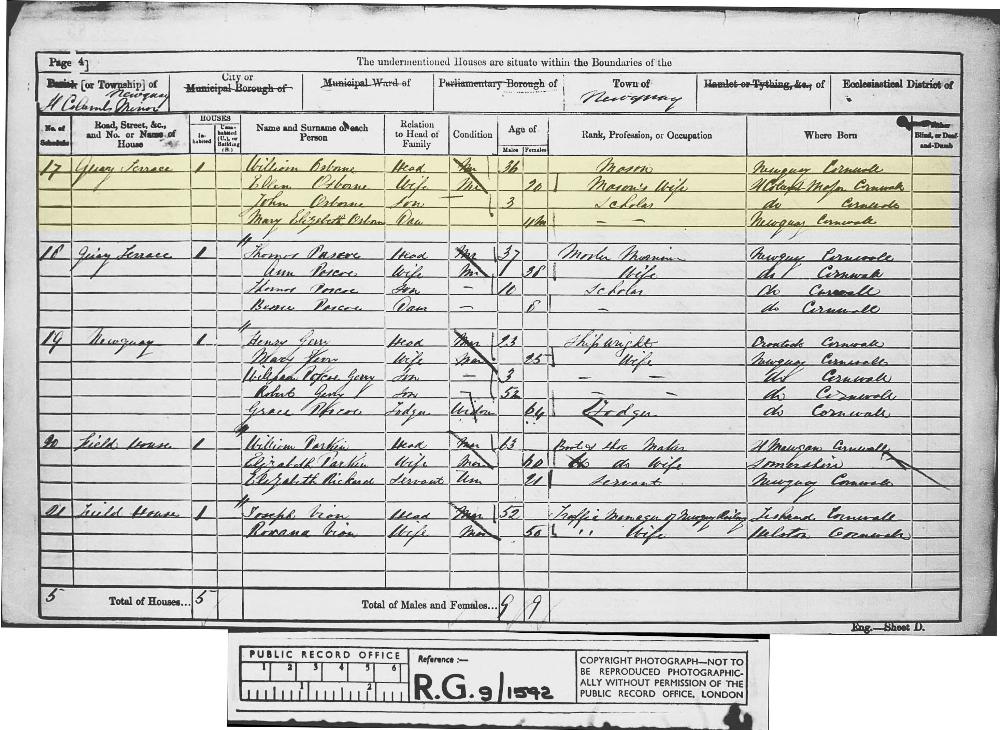 Page 4] The undermentioned Houses are situate within the Boundaries of the
Parish [or Township] of City or Municipal Borough of Municipal Ward of Parliamentary Borough of Town of Hamlet or Tything, &c., of Ecclesiastical District of
Newquay
St Columb Minor Newquay
No. of Schedule Road, Street, &c., and No. or Name of House HOUSES In-habited Unin-habited (U.), or Building (B.) Name and Surname of each Person Relation to Head of Family Condition Age of Males Females Rank, Profession, or Occupation Where Born Whether Blind, or Deaf-and-Dumb
17 Quay Terrace 1 William Osborne Head Mar 36 Mason Newquay Cornwall
Ellen Osborne Wife Mar 20 Mason's Wife St Columb Major Cornwall
John Osborne Son 3 Scholar do Cornwall
Mary Elizabeth Osborn Dau 4m — — Newquay Cornwall
18 Quay Terrace 1 Thomas Pascoe Head Mar 37 Master Mariner Newquay Cornwall
Ann Pascoe Wife Mar 28 Wife do Cornwall
Thomas Pascoe Son — 10 Scholar do Cornwall
Pascoe Daur — 8 — — do Cornwall
19 Newquay 1 Henry Gerry Head Mar 23 Ship Wright Cornwall
Mary Wife Mar 25 Wife Newquay Cornwall
William Pascoe Gerry Son — 3 — — do Cornwall
Robert Gerry Son — 52 do Cornwall
Grace Pascoe Lodger Widow 64 Lodger do Cornwall
20 Field House 1 William Parkin Head Mar 63 Boot & Shoe Maker St Mawgan Cornwall
Elizabeth Parkin Wife Mar 60 do Wife Somershire
Elizabeth Rickard Servant Un 21 Servant Newquay Cornwall
21 Field House 1 Joseph Head Mar 52 Traffic Manager of Newquay Railway Liskeard Cornwall
Roxana Wife Mar 50 " Wife Helston Cornwall
5 Total of Houses... 5 Total of Males and Females... 9 9
Eng.—Sheet D.
PUBLIC RECORD OFFICE
1 2 3 4 5 6
1 2
Reference :—
R.G. 9/1592
COPYRIGHT PHOTOGRAPH—NOT TO
BE REPRODUCED PHOTOGRAPHIC-
ALLY WITHOUT PERMISSION OF THE
PUBLIC RECORD OFFICE, LONDON